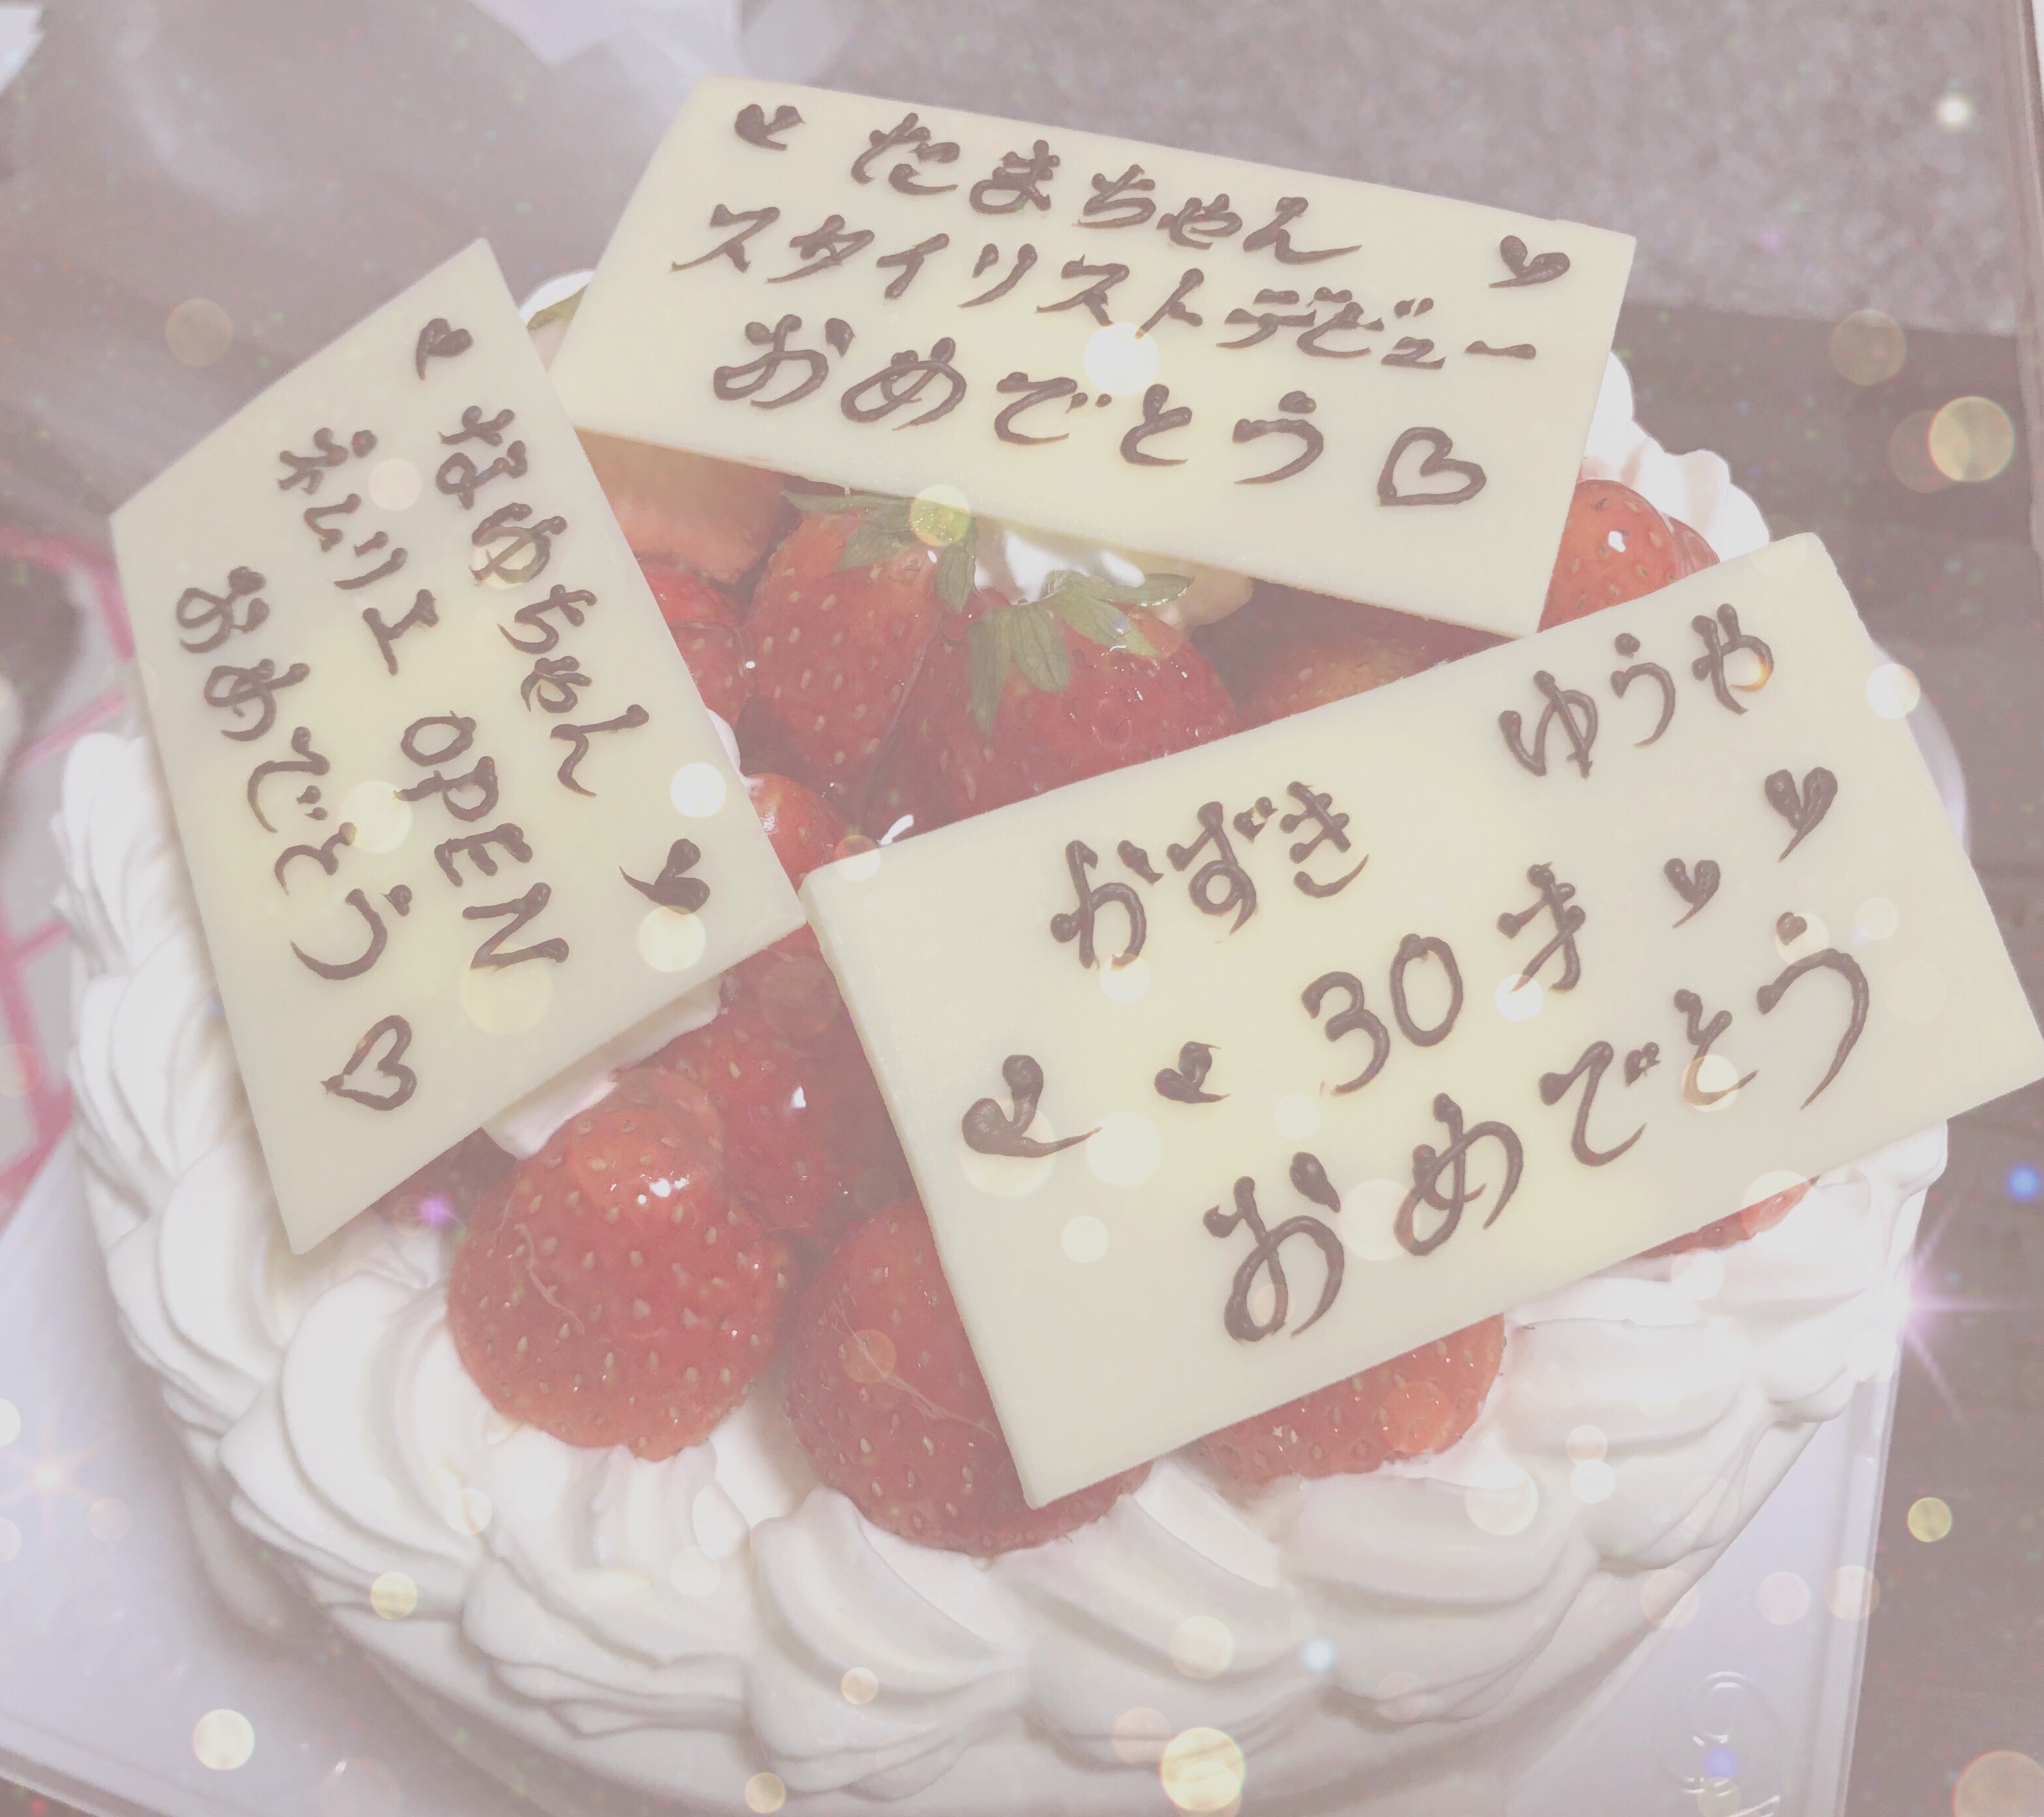 たまちゃん
スタイリストデビュー
おめでとう
なゆちゃん
ネレリエ OPEN
おめでとう
かずき ゆうや
30才
おめでとう